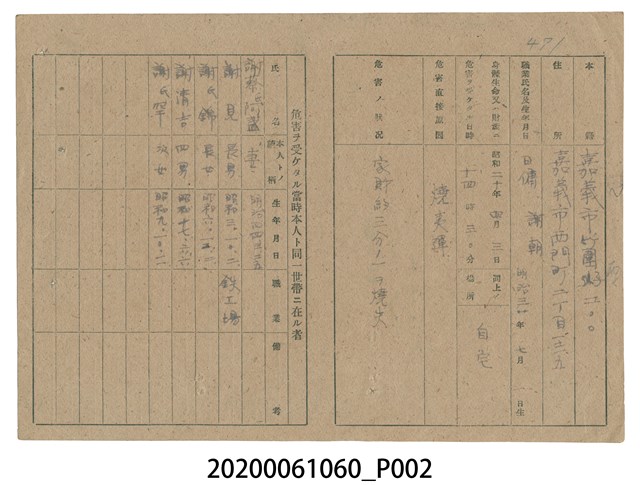 471
本籍 嘉義市竹園子二〇〇
住所 嘉義市西門町二丁目一三五
職業氏名及生年月日 日傭 謝朝 明治三 年 七月 一日生
身體生命又ハ財產ニ危害ヲ受ケタル日時 昭和二十年 四月 三日 十四時 三〇分
同上ノ場所 自宅
危害直接原因 燒夷彈
危害ノ狀況 家財約三分ノ一ヲ燒失
危害ヲ受ケタル當時本人ト同一世帶ニ在ル者
氏名 本人トノ續柄 生年月日 職業 備考
謝蔡 妻 明治
謝見 長男 昭和三、一〇、二 鉄工場
謝氏錦 長女 昭和
謝清吉 四男 昭和十七、
謝氏罕 次女 昭和九、一〇、二
20200061060_P002